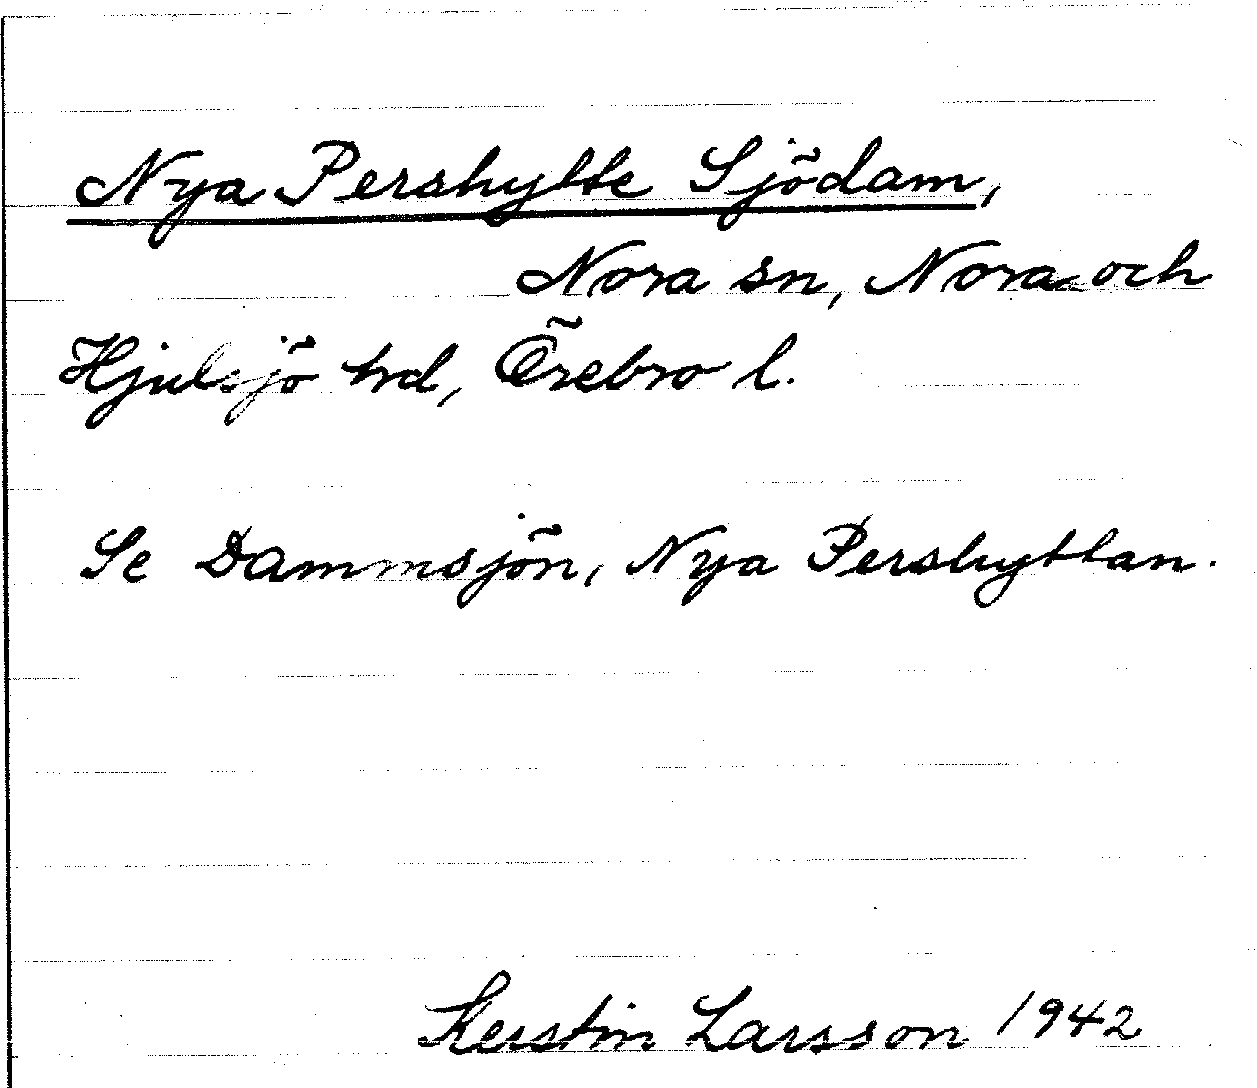 Nya Pershytte Sjödam,
Nora sn, Nora och
Hjulsjö hd, Örebro l.
Se Dammsjön, Nya Pershyttan.
Kerstin Larsson 1942